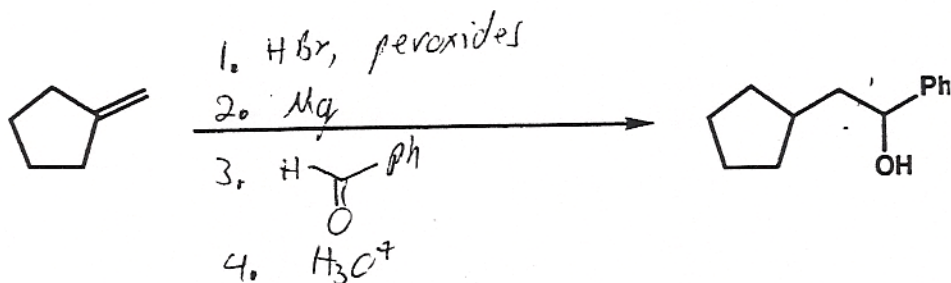 1. HBr, peroxides
2. Mg
3. H Ph
O
4. H3O+
Ph
OH